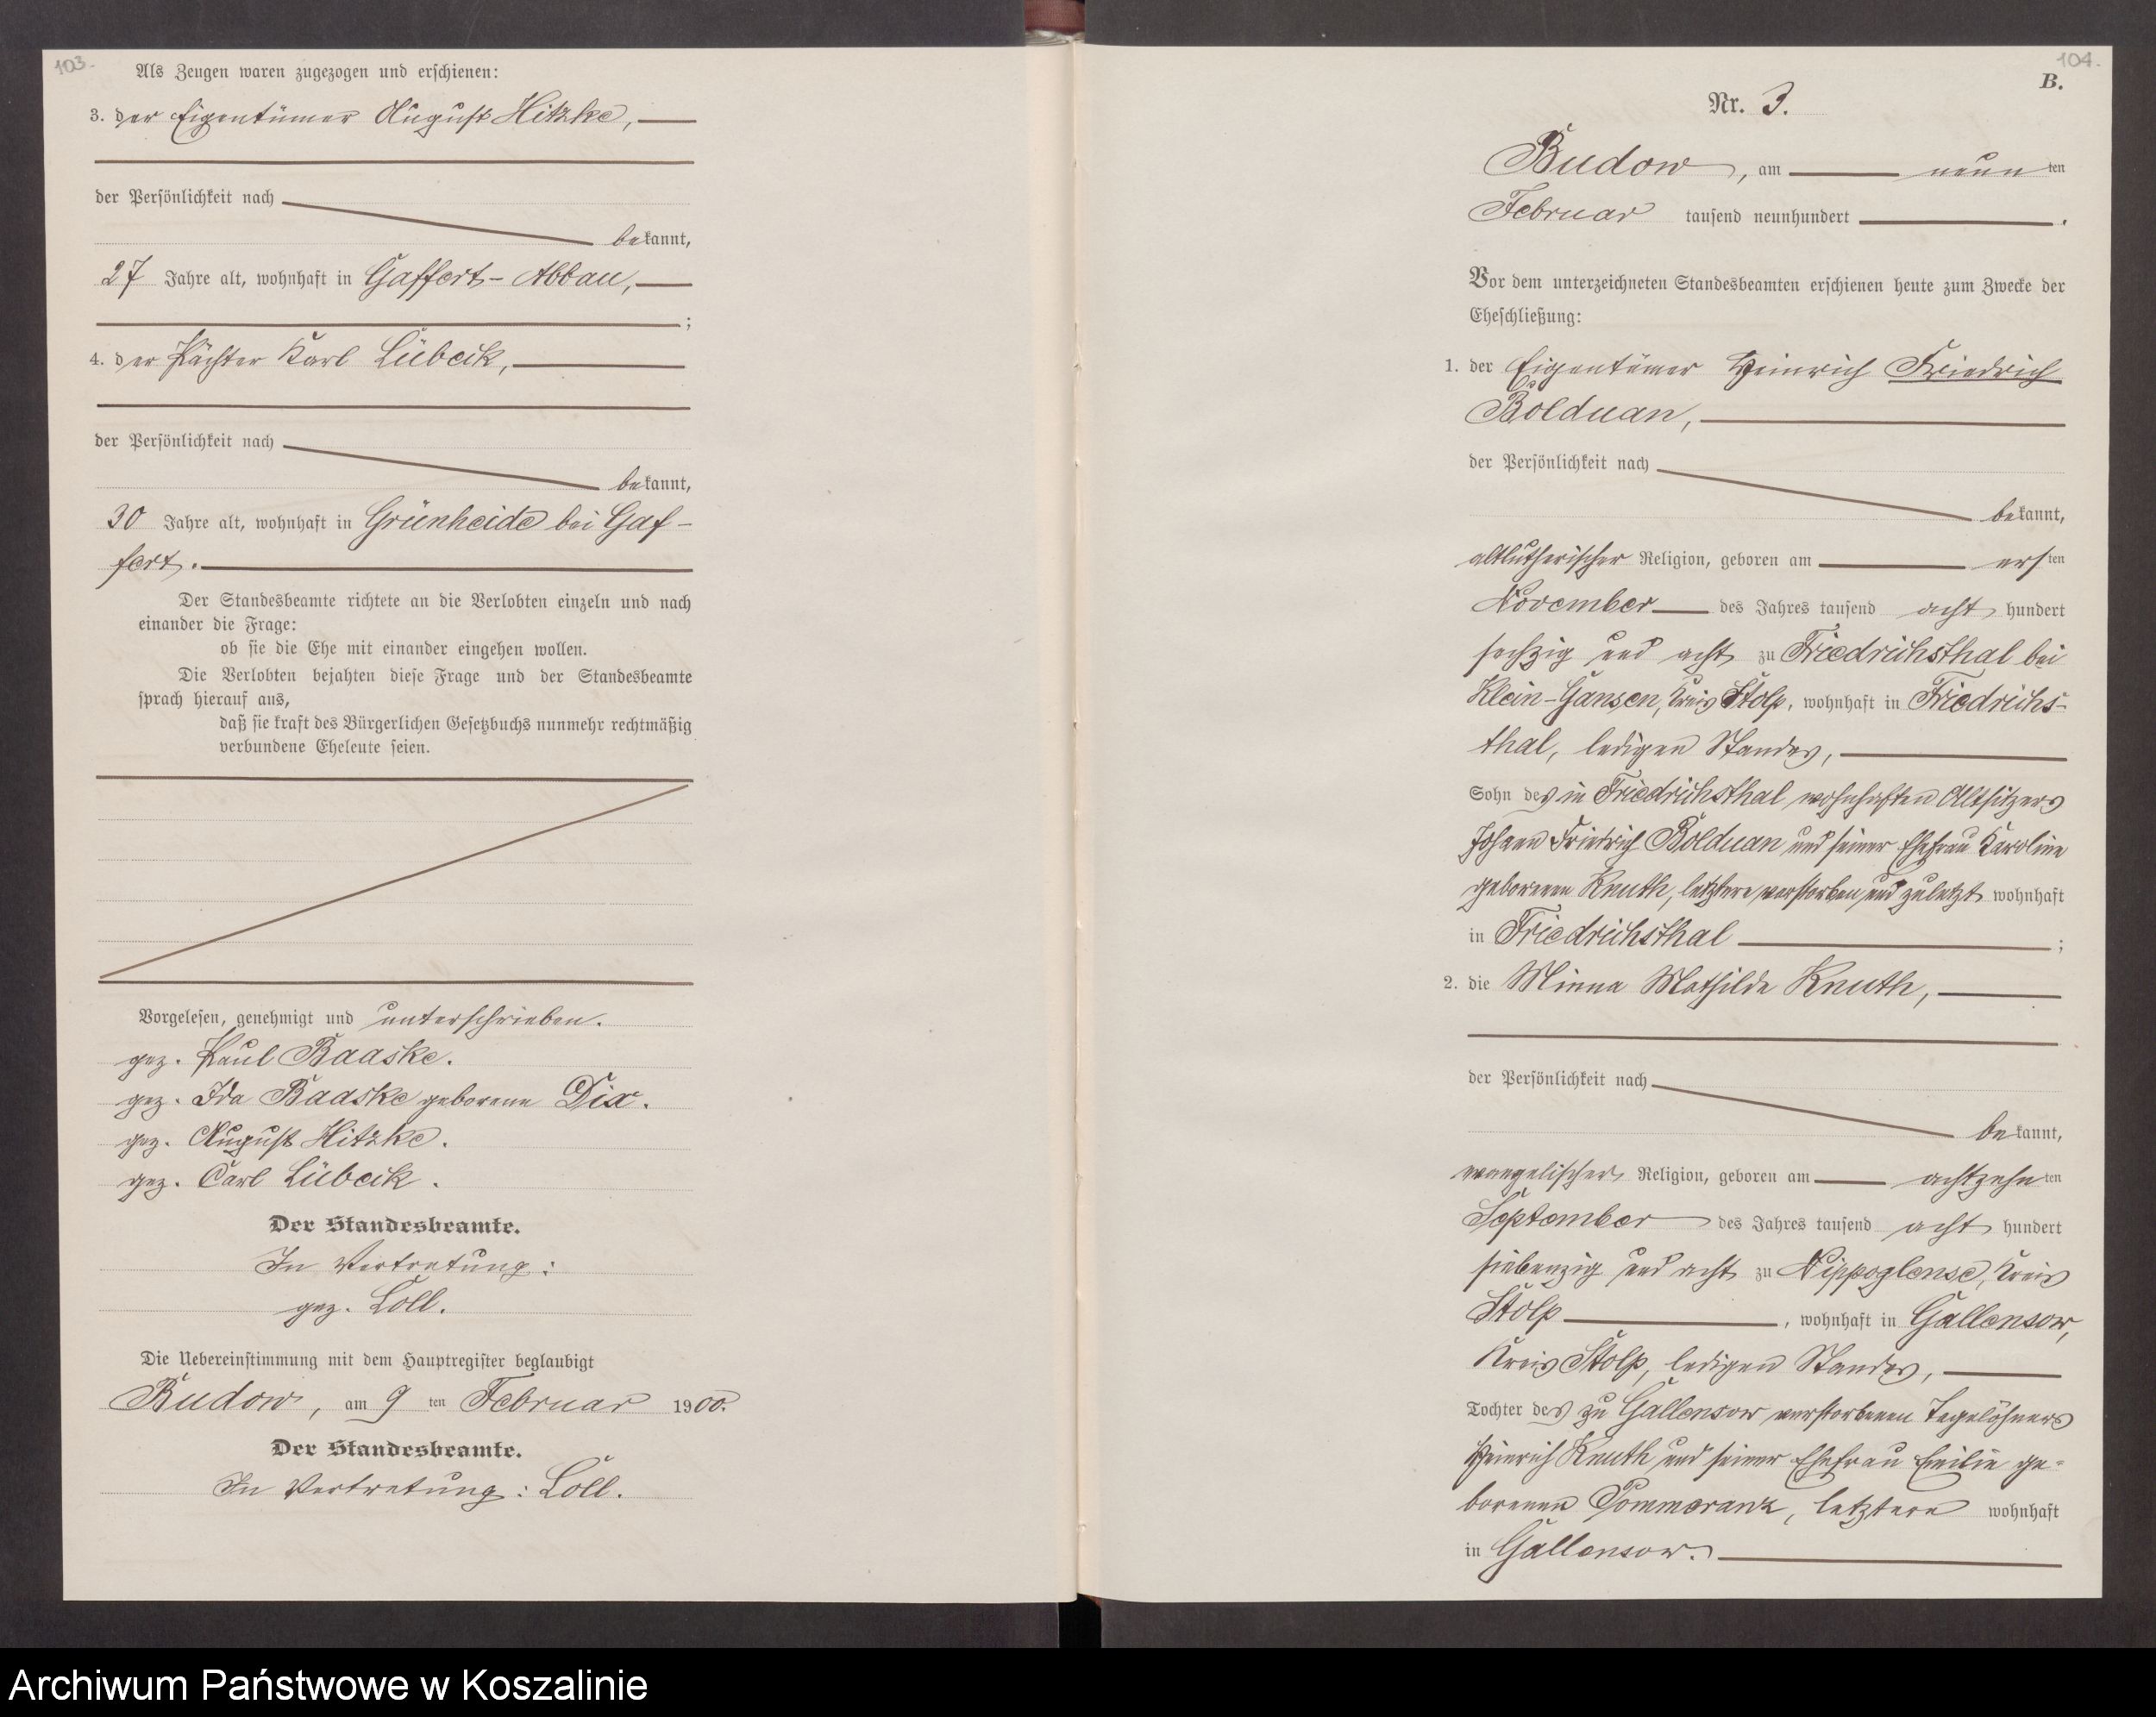 103.
Als Zeugen waren zugezogen und erschienen:
3. der Eigentümer August Hitzke,
der Persönlichkeit nach
bekannt,
27 Jahre alt, wohnhaft in Gaffert-Abbau,
;
4. der Pächter Karl Lübeck,
der Persönlichkeit nach
bekannt,
30 Jahre alt, wohnhaft in Grünheide bei Gaf-
fert.
Der Standesbeamte richtete an die Verlobten einzeln und nach
einander die Frage:
ob sie die Ehe mit einander eingehen wollen.
Die Verlobten bejahten diese Frage und der Standesbeamte
sprach hierauf aus,
daß sie kraft des Bürgerlichen Gesetzbuchs nunmehr rechtmäßig
verbundene Eheleute seien.
Vorgelesen, genehmigt und unterschrieben.
gez. Paul Baaske.
gez. Ida Baaske geborene Dix.
gez. August Hitzke.
gez. Carl Lübeck.
Der Standesbeamte.
In Vertretung:
gez. Loll.
Die Uebereinstimmung mit dem Hauptregister beglaubigt
Budow, am 9 ten Februar 1900.
Der Standesbeamte.
In Vertretung: Loll.
104.
B.
Nr. 3.
Budow, am neunten
Februar tausend neunhundert .
Vor dem unterzeichneten Standesbeamten erschienen heute zum Zwecke der
Eheschließung:
1. der Eigentümer Heinrich Friedrich
Bolduan,
der Persönlichkeit nach
bekannt,
altlutherischer Religion, geboren am ersten
November des Jahres tausend acht hundert
sechzig und acht zu Friedrichsthal bei
Klein-Gansen, Kreis Stolp, wohnhaft in Friedrichs-
thal, ledigen Standes,
Sohn des in Friedrichsthal wohnhaften Altsitzers
Johann Friedrich Bolduan und seiner Ehefrau Karoline
geborenen Knuth, letztere verstorben und zuletzt wohnhaft
in Friedrichsthal ;
2. die Minna Mathilde Knuth,
der Persönlichkeit nach
bekannt,
evangelischer Religion, geboren am achtzehnten
September des Jahres tausend acht hundert
siebenzig und acht zu Nippoglense, Kreis
Stolp , wohnhaft in Gallensow,
Kreis Stolp, ledigen Standes,
Tochter des zu Gallensow verstorbenen Tagelöhners
Heinrich Knuth und seiner Ehefrau Emilie ge-
borenen Pommeranz, letztere wohnhaft
in Gallensow.
Archiwum Państwowe w Koszalinie